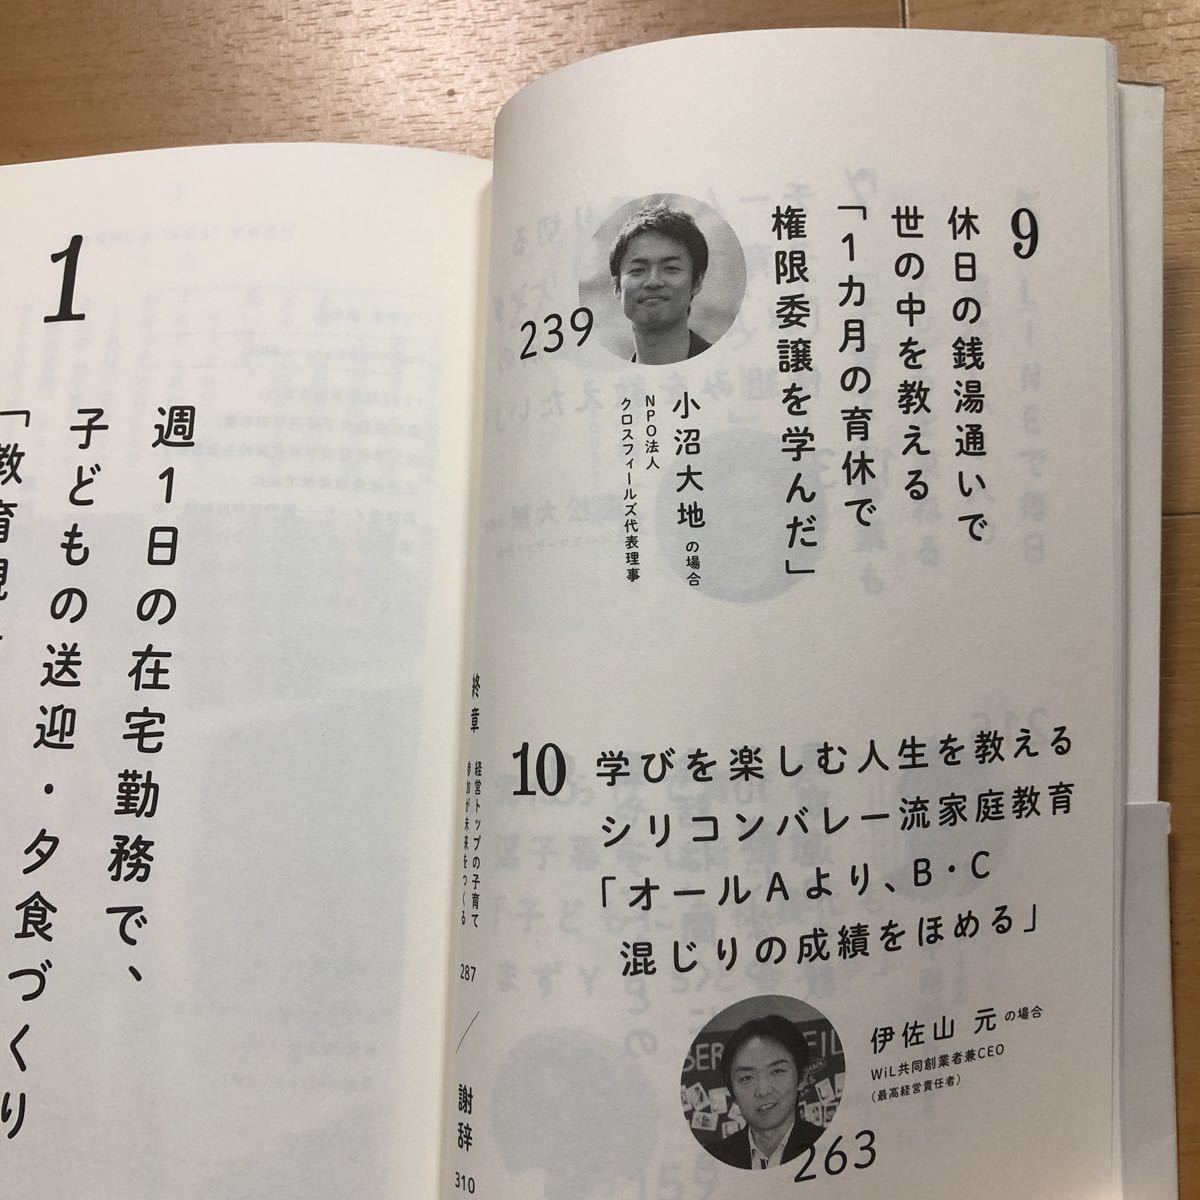 9
休日の銭湯通いで
世の中を教える
「1カ月の育休で
権限委譲を学んだ」
小沼大地 の場合
NPO法人
クロスフィールズ代表理事
239
10
学びを楽しむ人生を教える
シリコンバレー流家庭教育
「オールAより、B・C
混じりの成績をほめる」
伊佐山 元 の場合
WiL共同創業者兼CEO
(最高経営責任者)
263
終章
経営トップの子育て
参加が未来をつくる
287
謝辞
310
1
週1日の在宅勤務で、
子どもの送迎・夕食づくり
「教育